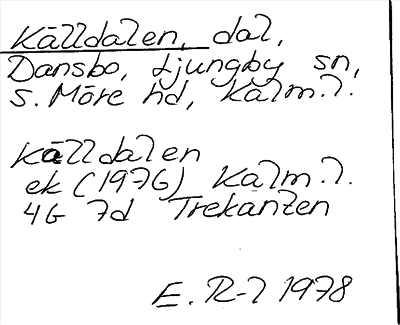 Källdalen, dal,
Dansbo, Ljungby sn,
S. Möre hd, Kalm. l.
Källdalen
ek (1976) Kalm. l.
4G 7d Trekanten
E. R-l 1978